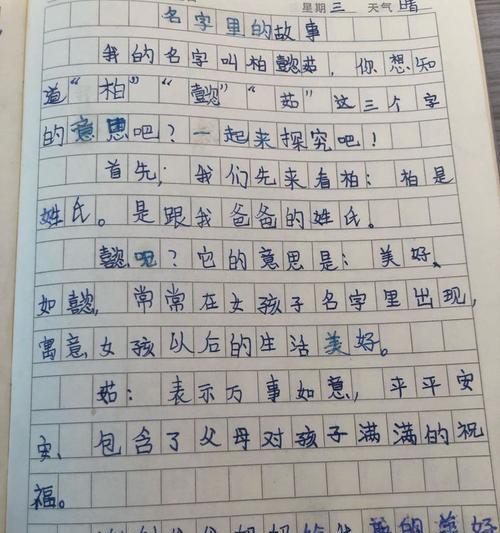 星期三 天气晴
名字里的故事
我的名字叫柏懿茹，你想知
道“柏”“懿”“茹”这三个字
的意思吧？一起来探究吧！
首先；我们先来看柏：柏是
姓氏。是跟我爸爸的姓氏。
懿呢？它的意思是：美好、
如懿，常常在女孩子名字里出现，
寓意女孩以后的生活美好。
茹：表示万事如意，平平安
安、包含了父母对孩子满满的祝
福。
的美好